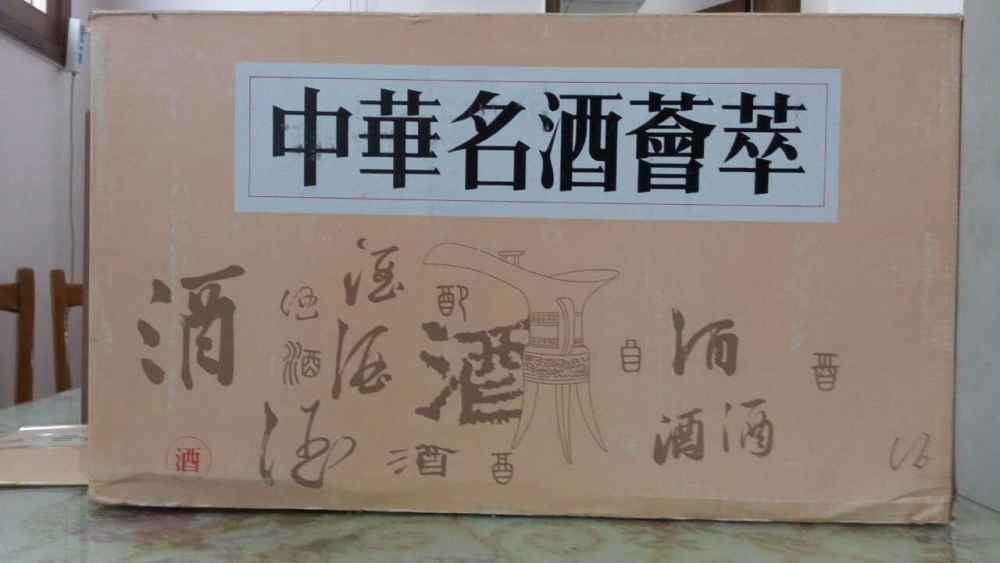 中華名酒薈萃
酒
酒
酒
酒
酒
酒
酒
酒
酒
酒
酒
酒